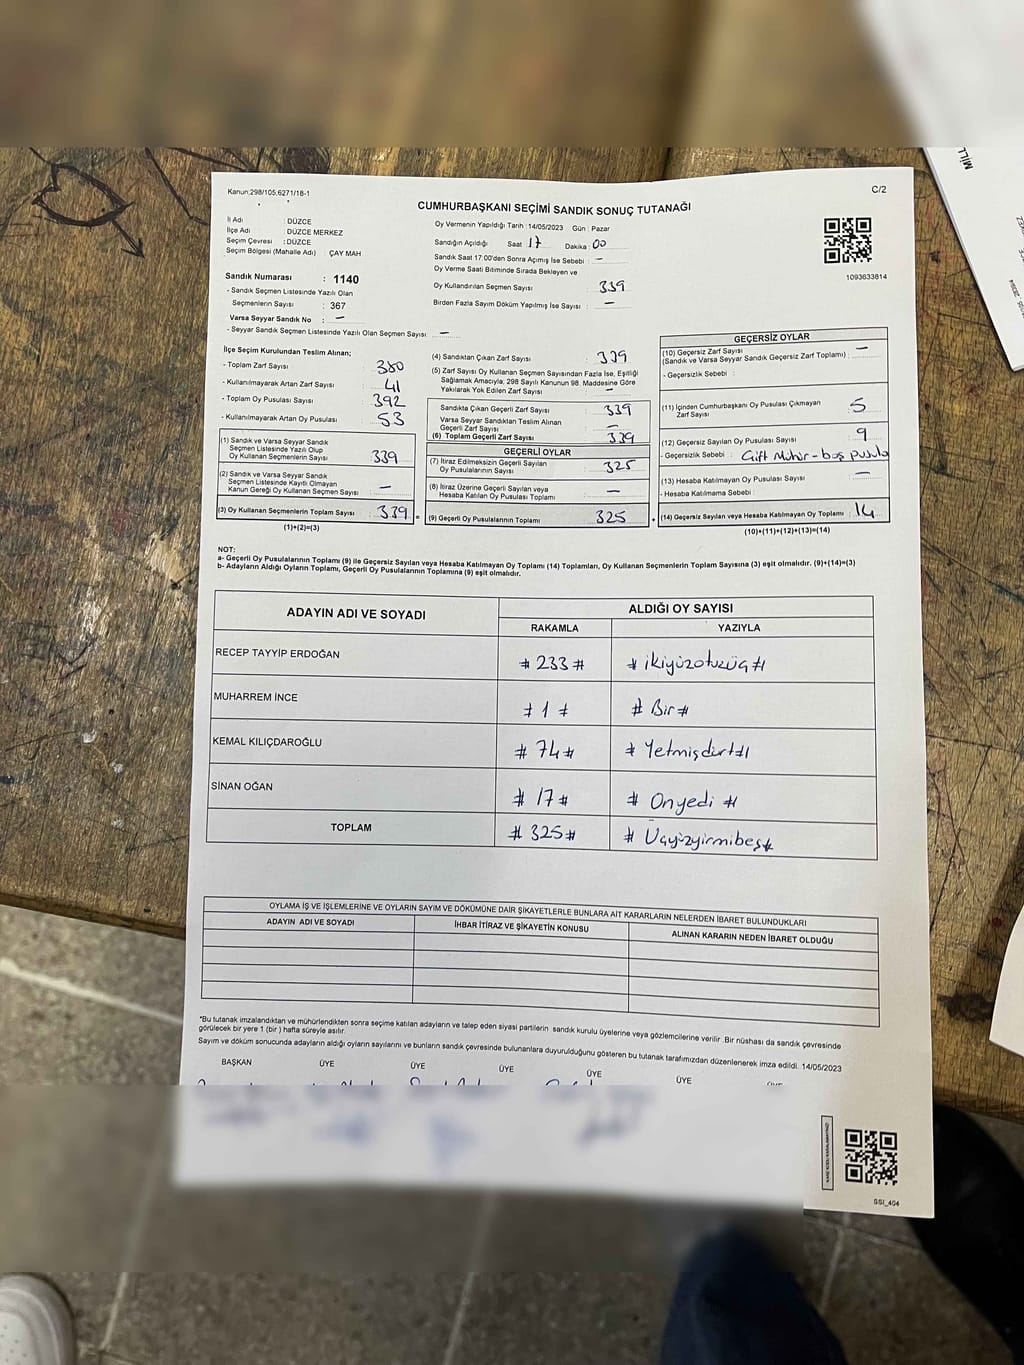 Kanun:298/105,6271/18-1
C/2
CUMHURBAŞKANI SEÇİMİ SANDIK SONUÇ TUTANAĞI
İl Adı : DÜZCE
İlçe Adı : DÜZCE MERKEZ
Seçim Çevresi : DÜZCE
Seçim Bölgesi (Mahalle Adı) : ÇAY MAH
Oy Vermenin Yapıldığı Tarih :14/05/2023 Gün : Pazar
Sandığın Açıldığı Saat 17 Dakika 00
Sandık Saat 17:00'den Sonra Açılmış İse Sebebi : -
Oy Verme Saati Bitiminde Sırada Bekleyen ve
Oy Kullandırılan Seçmen Sayısı : 339
Birden Fazla Sayım Döküm Yapılmış İse Sayısı : -
1093633814
Sandık Numarası : 1140
- Sandık Seçmen Listesinde Yazılı Olan
Seçmenlerin Sayısı : 367
Varsa Seyyar Sandık No : -
- Seyyar Sandık Seçmen Listesinde Yazılı Olan Seçmen Sayısı : -
İlçe Seçim Kurulundan Teslim Alınan;
- Toplam Zarf Sayısı : 380
- Kullanılmayarak Artan Zarf Sayısı : 41
- Toplam Oy Pusulası Sayısı : 392
- Kullanılmayarak Artan Oy Pusulası : 53
(1) Sandık ve Varsa Seyyar Sandık
Seçmen Listesinde Yazılı Olup
Oy Kullanan Seçmenlerin Sayısı 339
(2) Sandık ve Varsa Seyyar Sandık
Seçmen Listesinde Kayıtlı Olmayan
Kanun Gereği Oy Kullanan Seçmen Sayısı : -
(3) Oy Kullanan Seçmenlerin Toplam Sayısı : 339
(1)+(2)=(3)
(4) Sandıktan Çıkan Zarf Sayısı : 339
(5) Zarf Sayısı Oy Kullanan Seçmen Sayısından Fazla İse, Eşitliği
Sağlamak Amacıyla; 298 Sayılı Kanunun 98. Maddesine Göre
Yakılarak Yok Edilen Zarf Sayısı : -
Sandıkta Çıkan Geçerli Zarf Sayısı : 339
Varsa Seyyar Sandıktan Teslim Alınan
Geçerli Zarf Sayısı : -
(6) Toplam Geçerli Zarf Sayısı : 339
GEÇERLİ OYLAR
(7) İtiraz Edilmeksizin Geçerli Sayılan
Oy Pusulalarının Sayısı : 325
(8) İtiraz Üzerine Geçerli Sayılan veya
Hesaba Katılan Oy Pusulası Toplamı : -
(9) Geçerli Oy Pusulalarının Toplamı : 325
GEÇERSİZ OYLAR
(10) Geçersiz Zarf Sayısı -
(Sandık ve Varsa Seyyar Sandık Geçersiz Zarf Toplamı) :
- Geçersizlik Sebebi :
(11) İçinden Cumhurbaşkanı Oy Pusulası Çıkmayan
Zarf Sayısı : 5
(12) Geçersiz Sayılan Oy Pusulası Sayısı : 9
- Geçersizlik Sebebi : Çift Mühür - boş pusula
(13) Hesaba Katılmayan Oy Pusulası Sayısı : -
- Hesaba Katılmama Sebebi :
(14) Geçersiz Sayılan veya Hesaba Katılmayan Oy Toplamı : 14
(10)+(11)+(12)+(13)=(14)
NOT:
a- Geçerli Oy Pusulalarının Toplamı (9) ile Geçersiz Sayılan veya Hesaba Katılmayan Oy Toplamı (14) Toplamları, Oy Kullanan Seçmenlerin Toplam Sayısına (3) eşit olmalıdır. (9)+(14)=(3)
b- Adayların Aldığı Oyların Toplamı, Geçerli Oy Pusulalarının Toplamına (9) eşit olmalıdır.
ADAYIN ADI VE SOYADI ALDIĞI OY SAYISI
RAKAMLA YAZIYLA
RECEP TAYYİP ERDOĞAN # 233 # # ikiyüzotuzüç #
MUHARREM İNCE # 1 # # Bir #
KEMAL KILIÇDAROĞLU # 74 # # Yetmişdört #
SİNAN OĞAN # 17 # # Onyedi #
TOPLAM # 325 # # Üçyüzyirmibeş #
OYLAMA İŞ VE İŞLEMLERİNE VE OYLARIN SAYIM VE DÖKÜMÜNE DAİR ŞİKAYETLERLE BUNLARA AİT KARARLARIN NELERDEN İBARET BULUNDUKLARI
ADAYIN ADI VE SOYADI İHBAR İTİRAZ VE ŞİKAYETİN KONUSU ALINAN KARARIN NEDEN İBARET OLDUĞU
*Bu tutanak imzalandıktan ve mühürlendikten sonra seçime katılan adayların ve talep eden siyasi partilerin sandık kurulu üyelerine veya gözlemcilerine verilir .Bir nüshası da sandık çevresinde
görülecek bir yere 1 (bir ) hafta süreyle asılır.
Sayım ve döküm sonucunda adayların aldığı oyların sayılarını ve bunların sandık çevresinde bulunanlara duyurulduğunu gösteren bu tutanak tarafımızdan düzenlenerek imza edildi. 14/05/2023
BAŞKAN ÜYE ÜYE ÜYE ÜYE ÜYE
SSI_404
MİLL